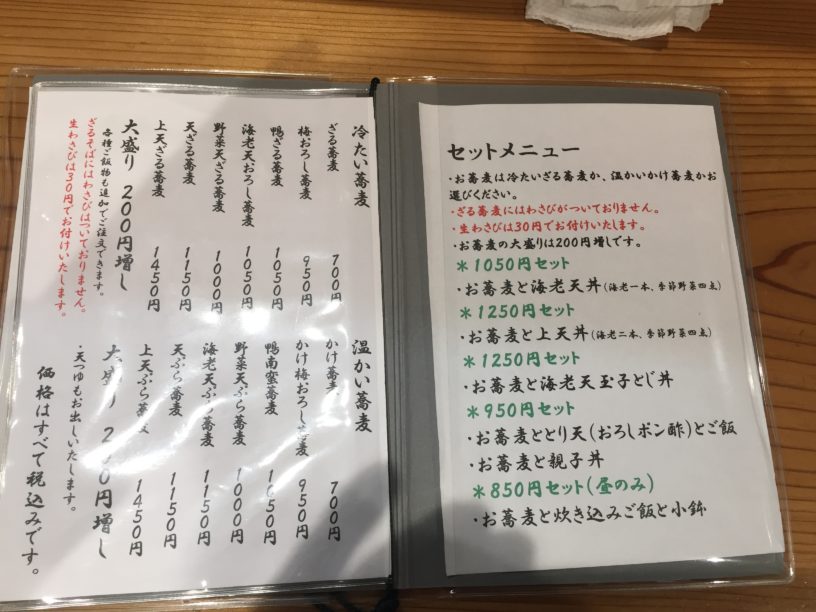 冷たい蕎麦
ざる蕎麦 700円
梅おろし蕎麦 950円
鴨ざる蕎麦 1050円
海老天おろし蕎麦 1050円
野菜天ざる蕎麦 1000円
天ざる蕎麦 1150円
上天ざる蕎麦 1450円
大盛り 200円増し
各種ご飯物も追加でご注文できます。
ざるそばにはわさびはついておりません。
生わさびは30円でお付けいたします。
温かい蕎麦
かけ蕎麦 700円
かけ梅おろし蕎麦 950円
鴨南蛮蕎麦 1050円
野菜天ぷら蕎麦 1000円
海老天ぷら蕎麦 1150円
天ぷら蕎麦 1150円
上天ぷら蕎麦 1450円
大盛り 200円増し
・天つゆもお出しいたします。
価格はすべて税込みです。
セットメニュー
・お蕎麦は冷たいざる蕎麦か、温かいかけ蕎麦かお
選びください。
・ざる蕎麦にはわさびがついておりません。
・生わさびは30円でお付けいたします。
・お蕎麦の大盛りは200円増しです。
＊1050円セット
・お蕎麦と海老天丼(海老一本、季節野菜四点)
＊1250円セット
・お蕎麦と上天丼(海老二本、季節野菜四点)
＊1250円セット
・お蕎麦と海老天玉子とじ丼
＊950円セット
・お蕎麦ととり天(おろしポン酢)とご飯
・お蕎麦と親子丼
＊850円セット(昼のみ)
・お蕎麦と炊き込みご飯と小鉢